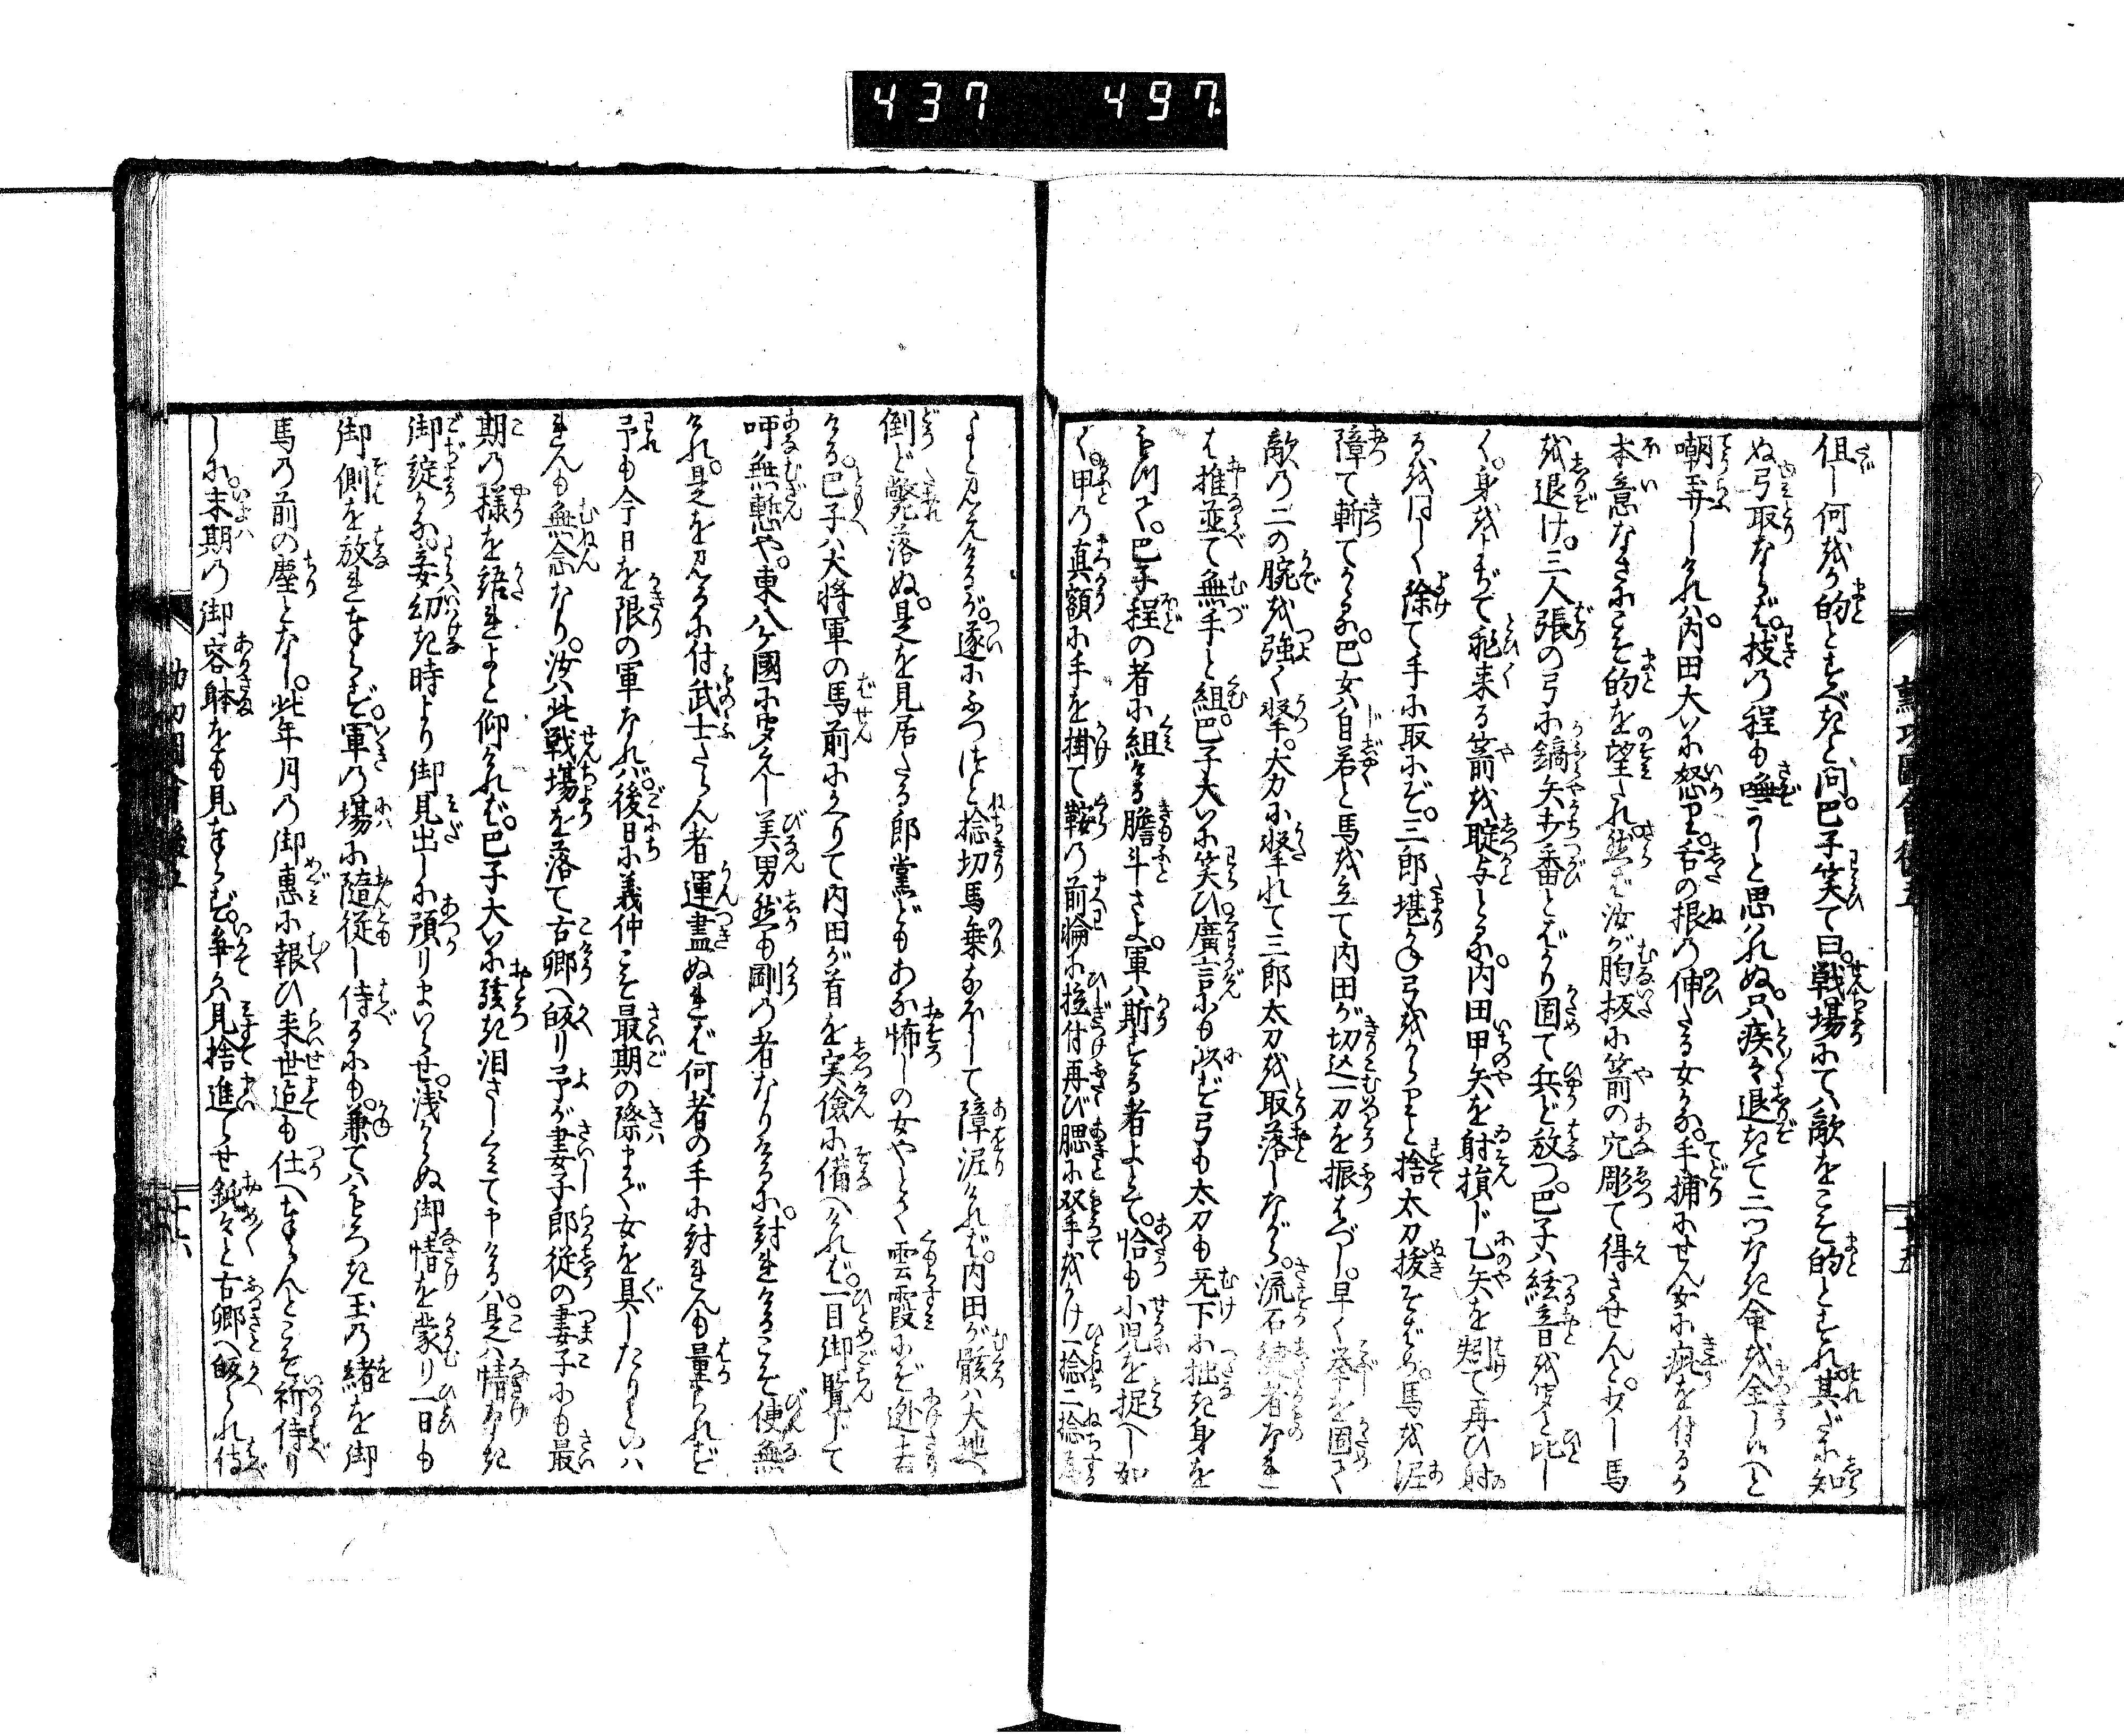 437 497
但し何をか的とすべきと問。巴子笑て曰。戦場にてハ敵をこそ的とすれ。其だに知
ぬ弓取ならば。技の程も嘸かしと思ハれぬ。只疾々退きて二つなき命を全し給へと
嘲弄しければ。内田大いに怒り。舌の根の伸たる女かな。手捕にせんが女に疵を付るが
本意なさにこそ的を望たれ。然ば汝が胸板に箭の穴彫て得させんと。少し馬
を退け。三人張の弓に鏑矢打番とばかり固て兵ど放つ。巴子ハ絃音を聞と比し
く。身をよぢて飛来る箭を聢与とる。内田甲矢を射損じ乙矢を矧て再ひ射
るを同しく除て手に取にぞ。三郎堪かね弓をからりと捨太刀抜そばめ。馬を泥
障て斬てかかる。巴女ハ自若と馬を立て内田が切込一刀を振はづし。早く拳を固て
敵の二の腕を強く撃。大力に撃れて三郎太刀を取落しながら。流石健者なれ
ば推並て無手と組。巴子大いに笑ひ。廣言にも似ず弓も太刀も无下に拙き身を
もつて。巴子程の者に組たる膽斗さよ。軍ハ斯する者よとて。恰も小児を捉へし如
く。甲の真額に手を掛て鞍の前輪に拉付再び腮に双手をかけ一捻二捻する
よと見えけるが。遂にふつつと捻切馬乗なほして障泥ければ。内田が骸ハ大地へ
倒ど斃落ぬ。是を見居たる郎黨どもあな怖しの女やとて雲霞にぞ逃去
ける。巴子ハ大将軍の馬前にかへりて内田が首を実儉に備へければ。一目御覧じて
呼無慙や。東八ケ國に聞えし美男然も剛の者なりけるに。討れけるこそ便無
けれ。是を見るに付武士たらん者運盡ぬれば何者の手に討れんも量られず
予も今日を限の軍なれば。後日に義仲こそ最期の際まで女を具したりといハ
れんも無念なり。汝ハ此戦場を落て古郷へ皈り予が妻子郎従の妻子にも最
期の様を語れよと仰ければ。巴子大いに驚き泪さしぐみて申けるハ。是ハ情なき
御諚かな。妾幼き時より御見出しに預りまいらせ。浅からぬ御情を蒙り一日も
御側を放れ奉らず。軍の場に隨従し侍るにも。兼てハもろき玉の緒を御
馬の前の塵となし。此年月の御惠に報ひ来世迄も仕へ奉らんとこそ祈侍り
しに。末期の御容躰をも見奉らず。争か見捨進らせ鈍々と古郷へ皈られ侍